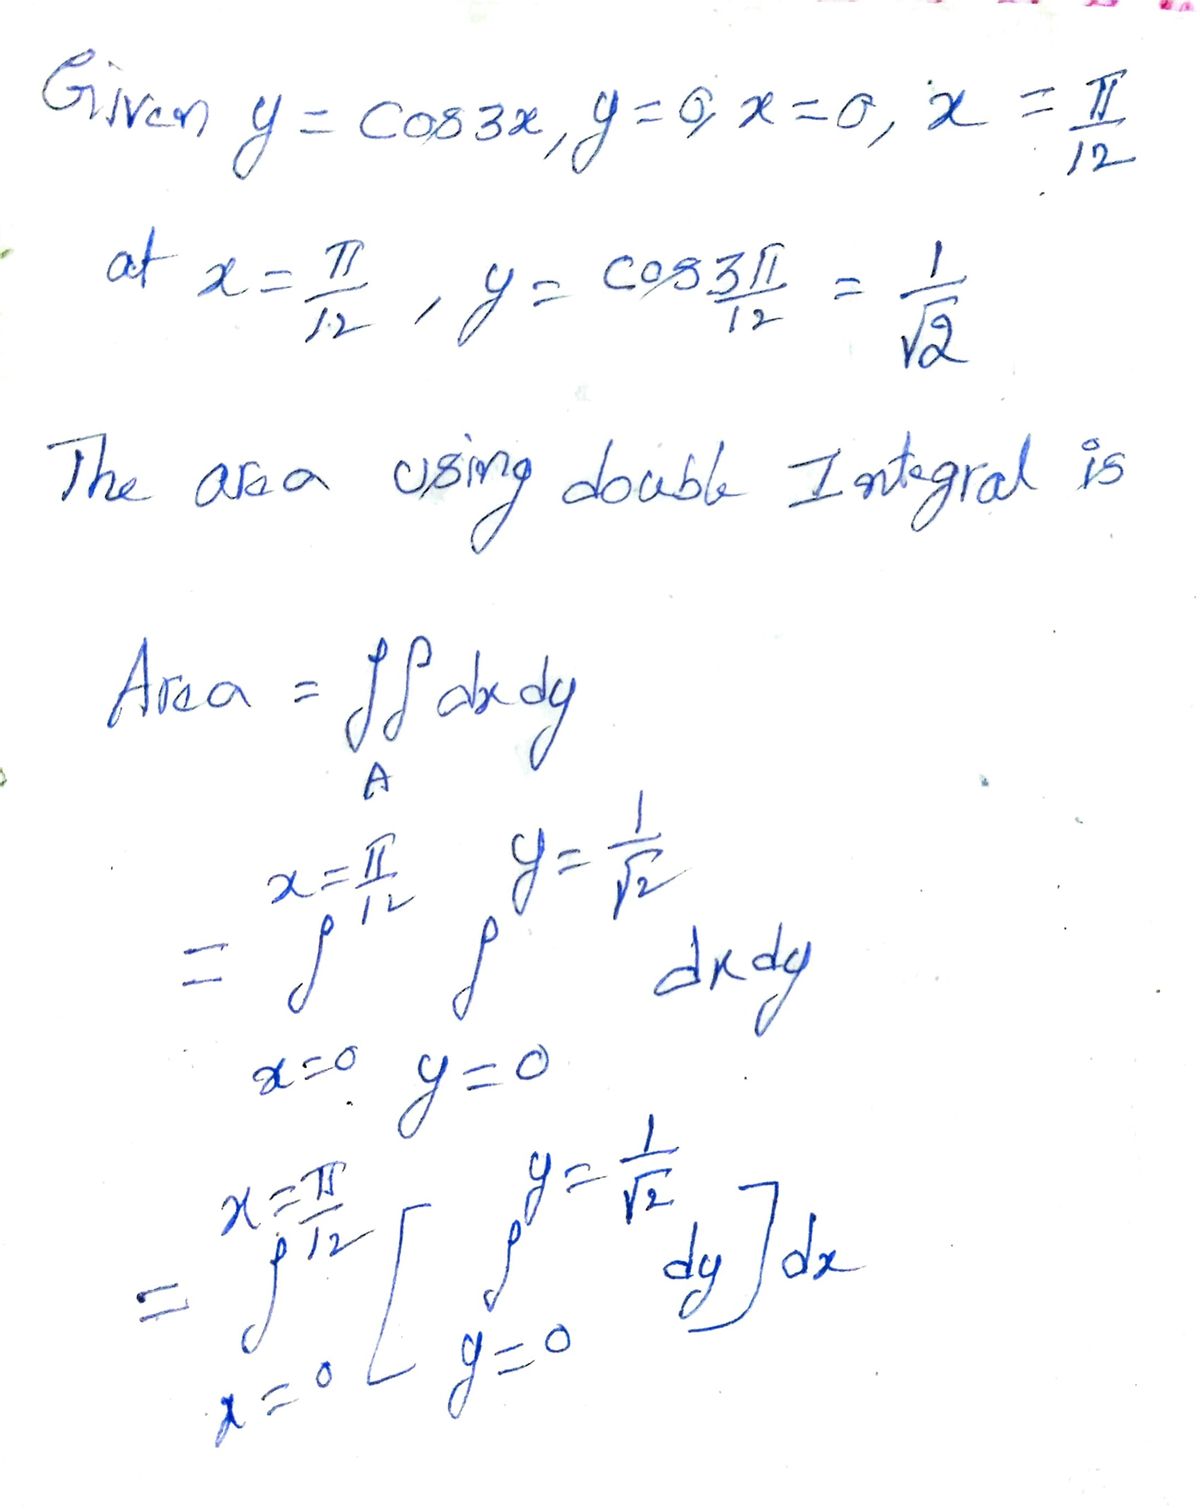 Given y = cos3x, y=0, x=0, x = π/12
at x = π/12, y = cos 3π/12 = 1/√2
The area using double Integral is
Area = ∬ dxdy
A
x=π/12 y=1/√2
= ∫ ∫ dxdy
x=0 y=0
x=π/12 y=1/√2
= ∫ [ ∫ dy ] dx
x=0 y=0